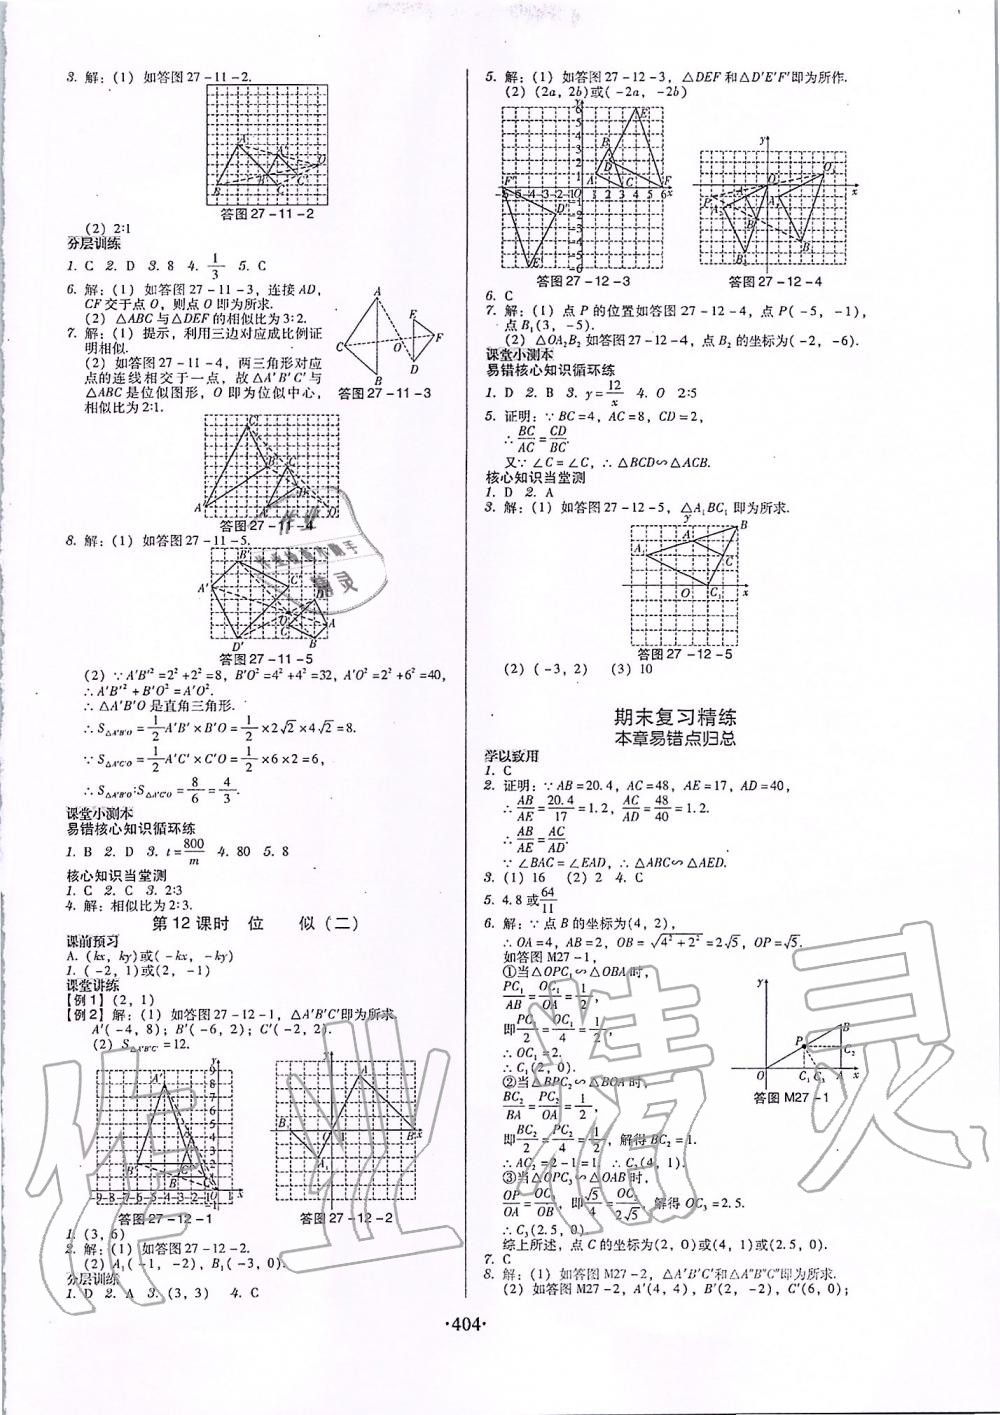 3. 解:(1) 如答图27-11-2.
答图27-11-2
(2) 2∶1
分层训练
1. C  2. D  3. 8  4. 1/3  5. C
6. 解:(1) 如答图27-11-3, 连接AD,
CF交于点O, 则点O即为所求.
(2) △ABC与△DEF的相似比为3∶2.
7. 解:(1) 提示, 利用三边对应成比例证
明相似.
(2) 如答图27-11-4, 两三角形对应
点的连线相交于一点, 故△A′B′C′与
△ABC是位似图形, O即为位似中心,
相似比为2∶1.
答图27-11-3
答图27-11-4
8. 解:(1) 如答图27-11-5.
答图27-11-5
(2) ∵A′B′²=2²+2²=8, B′O²=4²+4²=32, A′O²=2²+6²=40,
∴A′B′²+B′O²=A′O².
∴△A′B′O是直角三角形.
∴S△A′B′O=1/2A′B′×B′O=1/2×2√2×4√2=8.
∵S△A′C′O=1/2A′C′×C′O=1/2×6×2=6,
∴S△A′B′O∶S△A′C′O=8/6=4/3.
课堂小测本
易错核心知识循环练
1. B  2. D  3. t=800/m  4. 80  5. 8
核心知识当堂测
1. C  2. C  3. 2∶3
4. 解: 相似比为2∶3.
第12课时 位 似(二)
课前预习
A. (kx, ky)或(-kx, -ky)
1. (-2, 1)或(2, -1)
课堂讲练
【例1】(2, 1)
【例2】解:(1) 如答图27-12-1, △A′B′C′即为所求,
A′(-4, 8); B′(-6, 2); C′(-2, 2).
(2) S△A′B′C′=12.
答图27-12-1
答图27-12-2
1. (3, 6)
2. 解:(1) 如答图27-12-2.
(2) A₁(-1, -2), B₁(-3, 0).
分层训练
1. D  2. A  3. (3, 3)  4. C
5. 解:(1) 如答图27-12-3, △DEF和△D′E′F′即为所作.
(2) (2a, 2b)或(-2a, -2b)
答图27-12-3
答图27-12-4
6. C
7. 解:(1) 点P的位置如答图27-12-4, 点P(-5, -1),
点B₁(3, -5).
(2) △OA₂B₂如答图27-12-4, 点B₂的坐标为(-2, -6).
课堂小测本
易错核心知识循环练
1. D  2. B  3. y=12/x  4. O  2∶5
5. 证明: ∵BC=4, AC=8, CD=2,
∴BC/AC=CD/BC.
又∵∠C=∠C, ∴△BCD∽△ACB.
核心知识当堂测
1. D  2. A
3. 解:(1) 如答图27-12-5, △A₁BC₁即为所求.
答图27-12-5
(2) (-3, 2)  (3) 10
期末复习精练
本章易错点归总
学以致用
1. C
2. 证明: ∵AB=20.4, AC=48, AE=17, AD=40,
∴AB/AE=20.4/17=1.2, AC/AD=48/40=1.2.
∴AB/AE=AC/AD.
∵∠BAC=∠EAD, ∴△ABC∽△AED.
3. (1) 16  (2) 2  4. C
5. 4.8或64/11
6. 解: ∵点B的坐标为(4, 2),
∴OA=4, AB=2, OB=√4²+2²=2√5, OP=√5.
如答图M27-1,
①当△OPC₁∽△OBA时,
PC₁/AB=OC₁/OA=1/2,
即PC₁/2=OC₁/4=1/2,
∴OC₁=2.
∴C₁(2, 0).
②当△BPC₂∽△BOA时,
BC₂/BA=PC₂/OA=1/2,
即BC₂/2=PC₂/4=1/2, 解得BC₂=1.
∴AC₂=2-1=1. ∴C₂(4, 1).
③当△OPC₃∽△OAB时,
OP/OA=OC₃/OB, 即√5/4=OC₃/2√5, 解得OC₃=2.5.
∴C₃(2.5, 0).
综上所述, 点C的坐标为(2, 0)或(4, 1)或(2.5, 0).
答图M27-1
7. C
8. 解:(1) 如答图M27-2, △A′B′C′和△A″B″C″即为所求.
(2) 如答图M27-2, A′(4, 4), B′(2, -2), C′(6, 0);
·404·
作业精灵